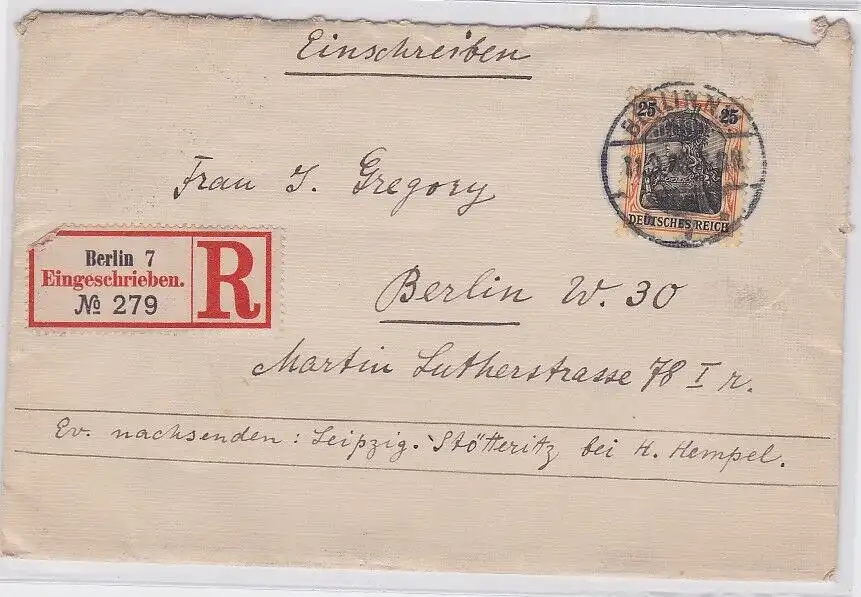 Einschreiben
25 25
DEUTSCHES REICH
BERLIN N.
Frau J. Gregory
Berlin 7
Eingeschrieben.
№ 279
R
Berlin W. 30
Martin Lutherstrasse 78 I r.
Ev. nachsenden: Leipzig-Stötteritz bei H. Hempel.